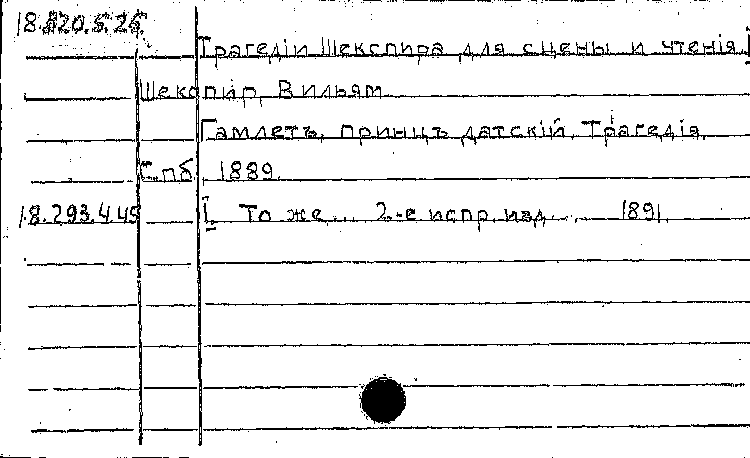 18.820.5.25.
Трагедіи Шекспира для сцены и чтенія. I
Шекспир, Вильям
Гамлетъ, принцъ датскій. Трагедія.
Спб. 1889.
18.293.4.45 I. То же... 2-е испр. изд... 1891.